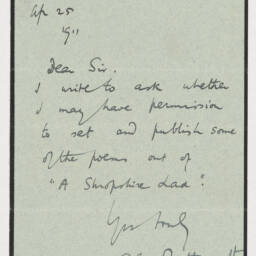 Apr 25
1911
Dear Sir.
I write to ask whether
I may have permission
to set and publish some
of the poems out of
"A Shropshire Lad".
Yrs truly